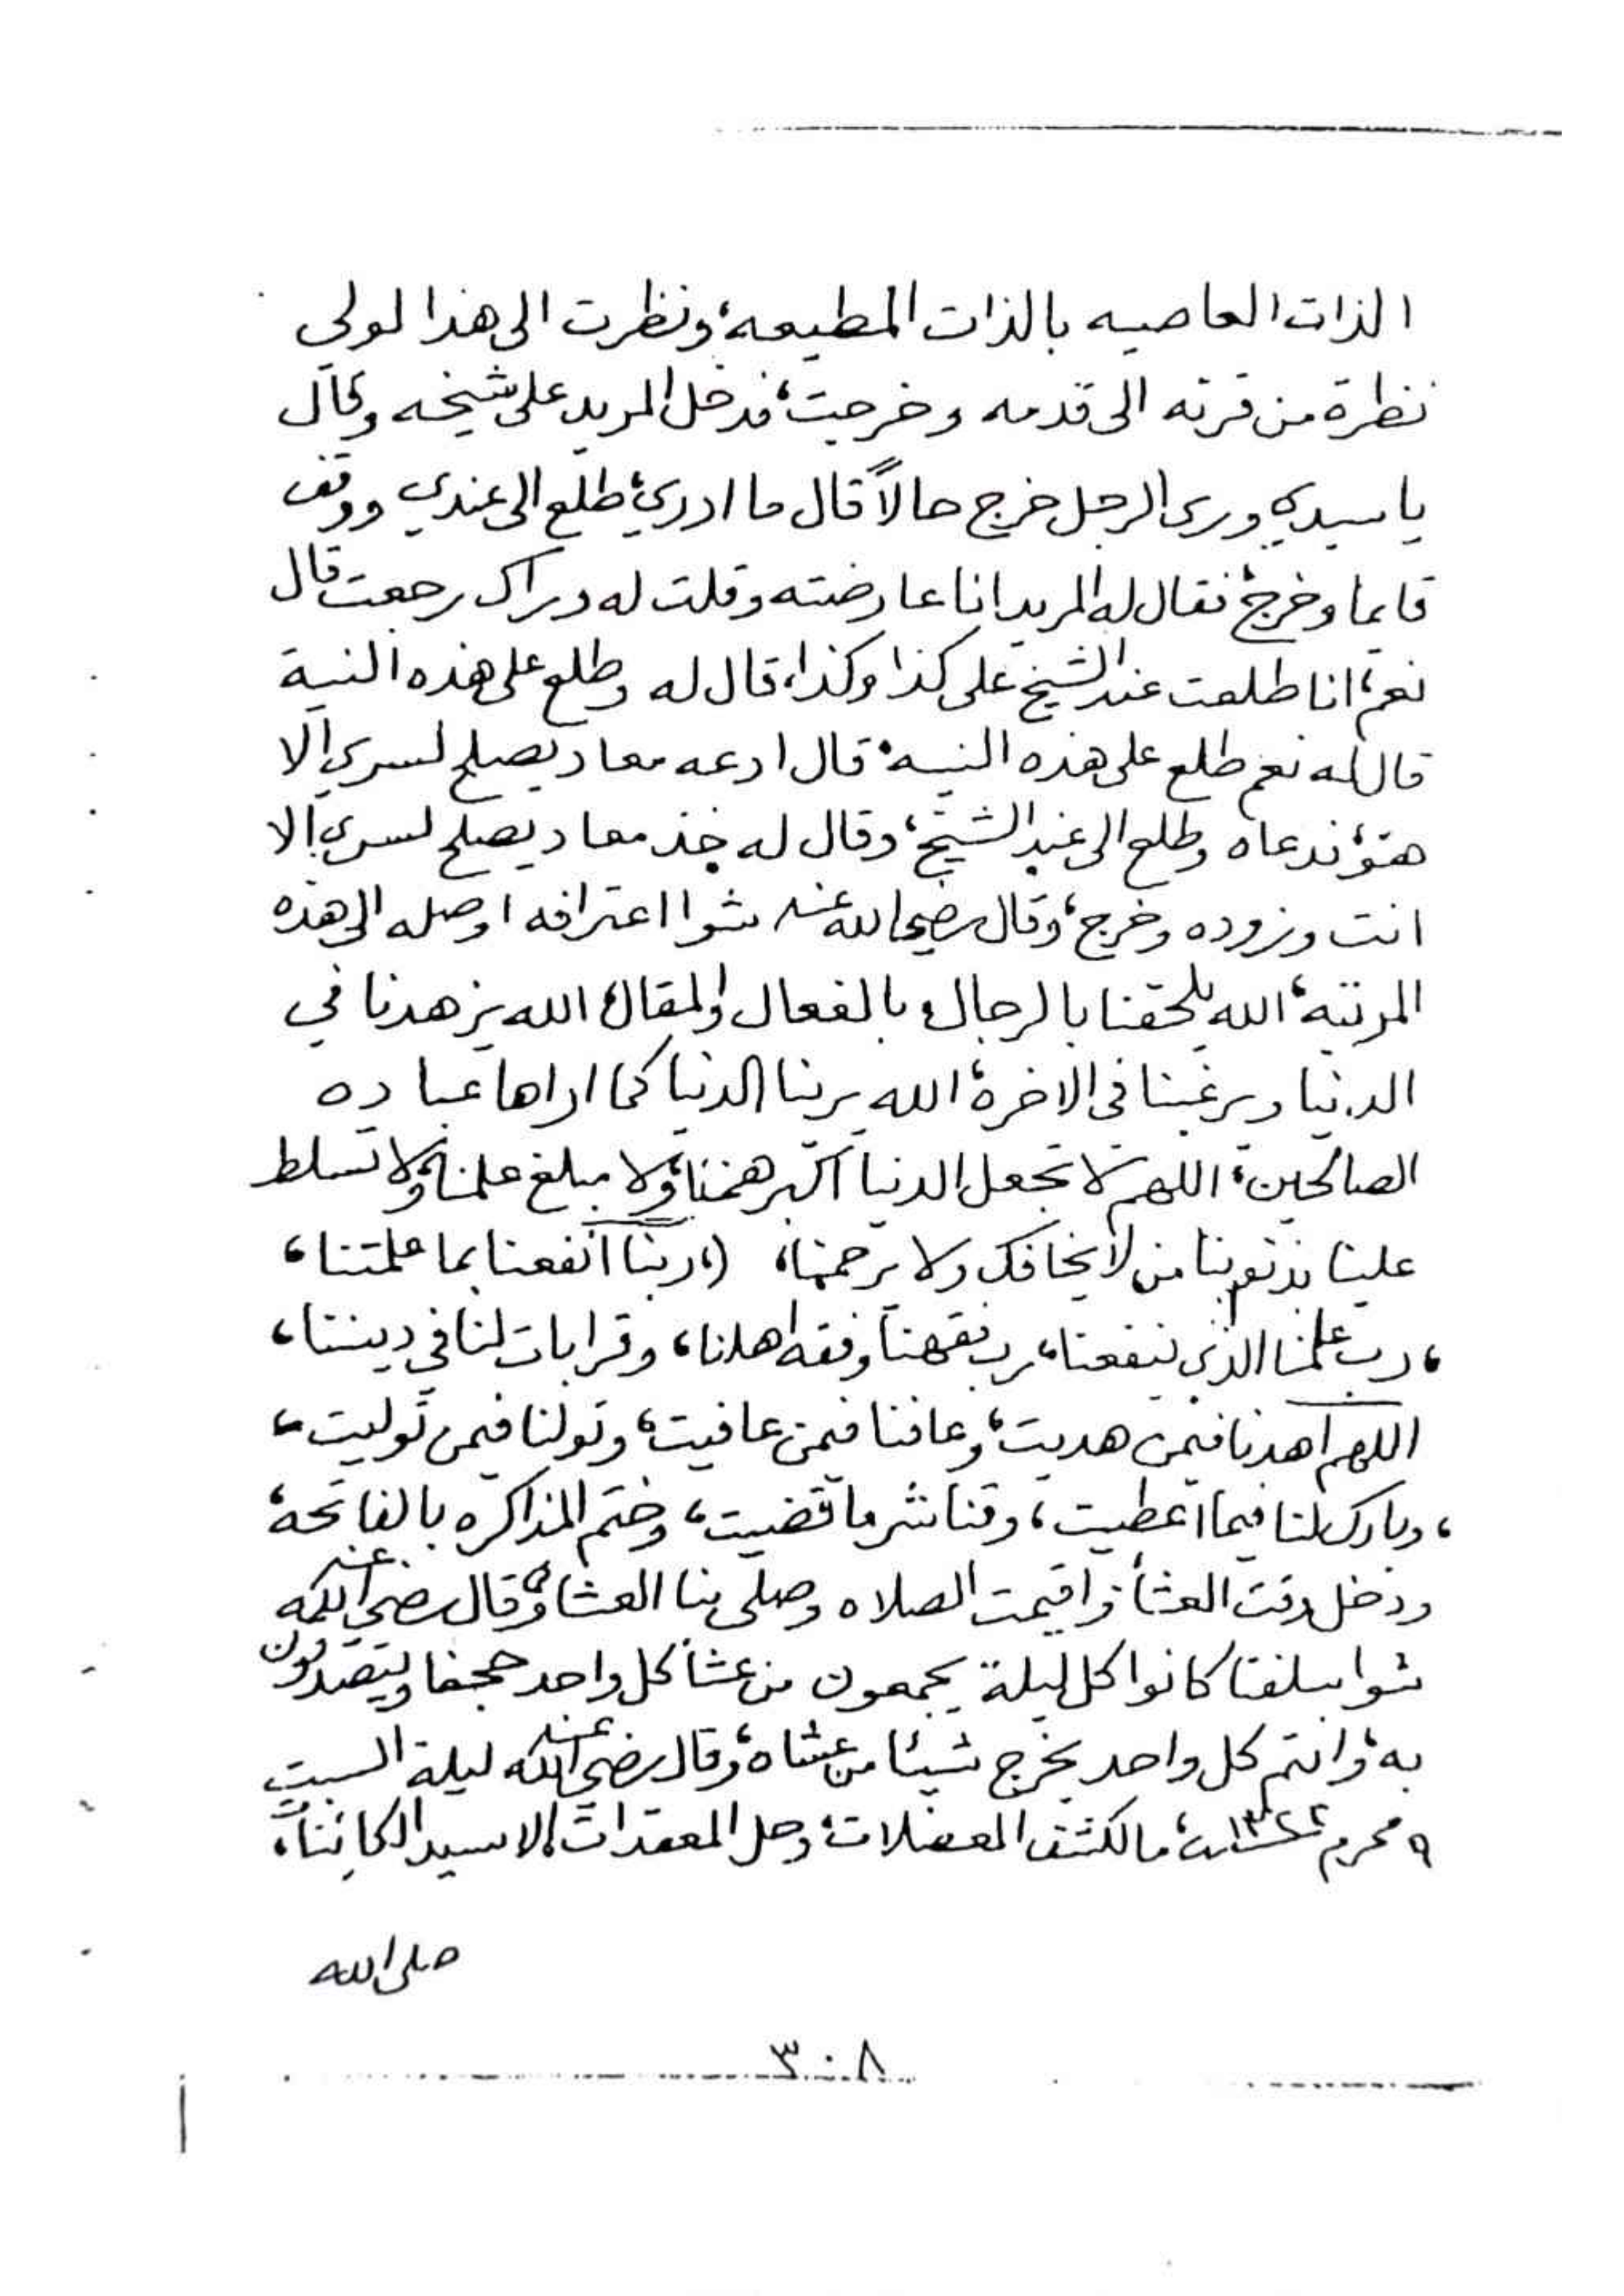 الذات العاصيه بالذات المطيعه، ونظرت الى هذا لولي
نظرة من قرنه الى قدمه وخرجت، فدخل المريد على شيخه وقال
يا سيدي ورى الرجل خرج حالاً قال ما ادري، طلع الى عندي ووقف
قايما وخرج، فقال له المريد انا عارضته وقلت له وراك رجعت قال
نعم، انا طلعت عند الشيخ على كذا وكذا، قال له وطلع على هذه النية
قال له نعم طلع على هذه النيه، قال ادعه معاد يصلح لسري الا
هو، فدعاه وطلع الى عند الشيخ، وقال له خذ معاد يصلح لسري الا
انت وزوده وخرج، وقال رضي الله عنه شوا اعترافه اوصله الى هذه
المرتبه، الله يلحقنا بالرجال بالفعال والمقال، الله يزهدنا في
الدنيا ويرغبنا في الاخرة، الله يرينا الدنيا كما اراها عباده
الصالحين، اللهم لا تجعل الدنيا اكبر همنا، ولا مبلغ علمنا، ولا تسلط
علينا بذنوبنا من لا يخافك ولا يرحمنا، (، ربنا انفعنا بما علمتنا،
، رب علمنا الذي ينفعنا، رب فقهنا وفقه اهلنا، وقرابات لنا في ديننا،
اللهم اهدنا فيمن هديت، وعافنا فيمن عافيت، وتولنا فيمن توليت،
، وبارك لنا فيما اعطيت، وقنا شر ما قضيت، وختم المذاكره بالفاتحه،
ودخل وقت العشا واقيمت الصلاه وصلى بنا العشاء، وقال رضي الله عنه
شوا سلفنا كانوا كل ليلة يجمعون من عشا كل واحد حجفا ويتصدقون
به، وانتم كل واحد يخرج شيئا من عشاه، وقال رضي الله عنه ليلة السبت
٩ محرم ١٣٢٢ سنة، ما لكشف المعضلات، وحل المعقدات، الا سيد الكائنات،
صلى الله
٣٠٨